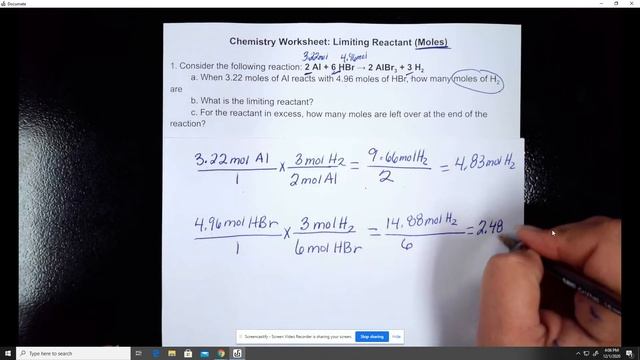 Documate
Chemistry Worksheet: Limiting Reactant (Moles)
3.22mol 4.96mol
1. Consider the following reaction: 2 Al + 6 HBr → 2 AlBr₃ + 3 H₂
a. When 3.22 moles of Al reacts with 4.96 moles of HBr, how many moles of H₂
are
b. What is the limiting reactant?
c. For the reactant in excess, how many moles are left over at the end of the
reaction?
3.22 mol Al / 1 × 3 mol H₂ / 2 mol Al = 9.66 mol H₂ / 2 = 4.83 mol H₂
4.96 mol HBr / 1 × 3 mol H₂ / 6 mol HBr = 14.88 mol H₂ / 6 = 2.48
Screencastify - Screen Video Recorder is sharing your screen. Stop sharing Hide
Type here to search
4:06 PM
12/1/2020